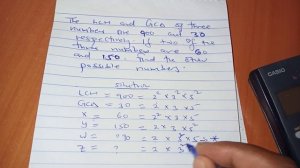 The LCM and GCD of three
numbers are 900 and 30
respectively. If two of the
three numbers are 60
and 150, find the other
possible numbers.
Solution
LCM = 900 = 2² x 3² x 5²
GCD = 30 = 2 x 3 x 5
x = 60 = 2² x 3 x 5
y = 150 = 2 x 3 x 5²
= 2 x 3² x 5
z = ? = 2 x 3²